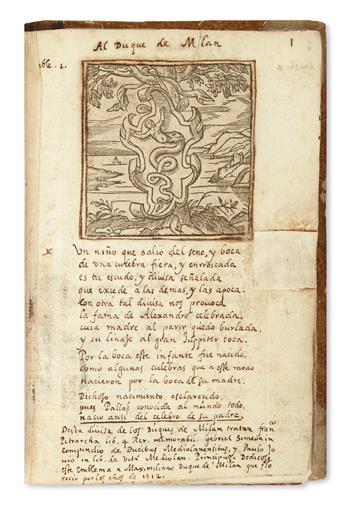 Al Duque de Milan
1
Un niño que salio del seno, y boca
de una culebra fiera, y enroscada
es tu escudo, y divisa señalada
que excede à las demas, y las apoca.
Con otra tal divisa nos provocò
la fama de Alexandro celebrada,
cuia madre al parir quedò burlada,
y su linaje al gran Juppiter toca.
Por la boca este infante fue nacido,
como algunas culebras que a este modo
nacieron por la boca de su madre.
Dichoso nacimiento esclarecido,
pues Pallas conocida al mundo todo,
nacio ansi del celebro de su padre.
Desta divisa de los Duques de Milan tratan franco
Petrarcha lib. 4. Rer. memorabil. Gabriel Simeon in
compendio de Ducibus Mediolanensibus, y Paulo Jo
vio in lib. de Vita Mediolan. Principum. Dedicose
este emblema a Maximiliano Duque de Milan que flo
recio por los años de 1512.